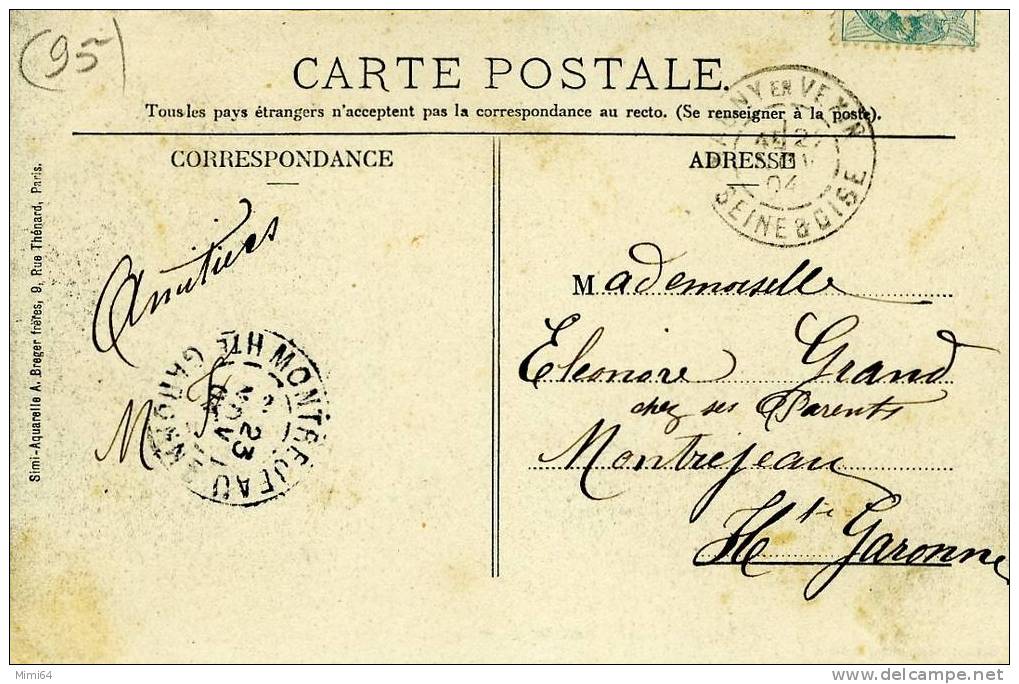 (95)
CARTE POSTALE.
Tous les pays étrangers n'acceptent pas la correspondance au recto. (Se renseigner à la poste).
CORRESPONDANCE
ADRESSE
NY EN VEXIN
04
SEINE & OISE
Simi-Aquarelle A. Breger frères, 9, Rue Thénard, Paris.
Amitiés
M
MONTREJEAU
HTE GARONNE
23
Mademoiselle
Eleonore Grand
chez ses Parents
Montrejeau
Hte Garonne
Mimi64
delcampe.net